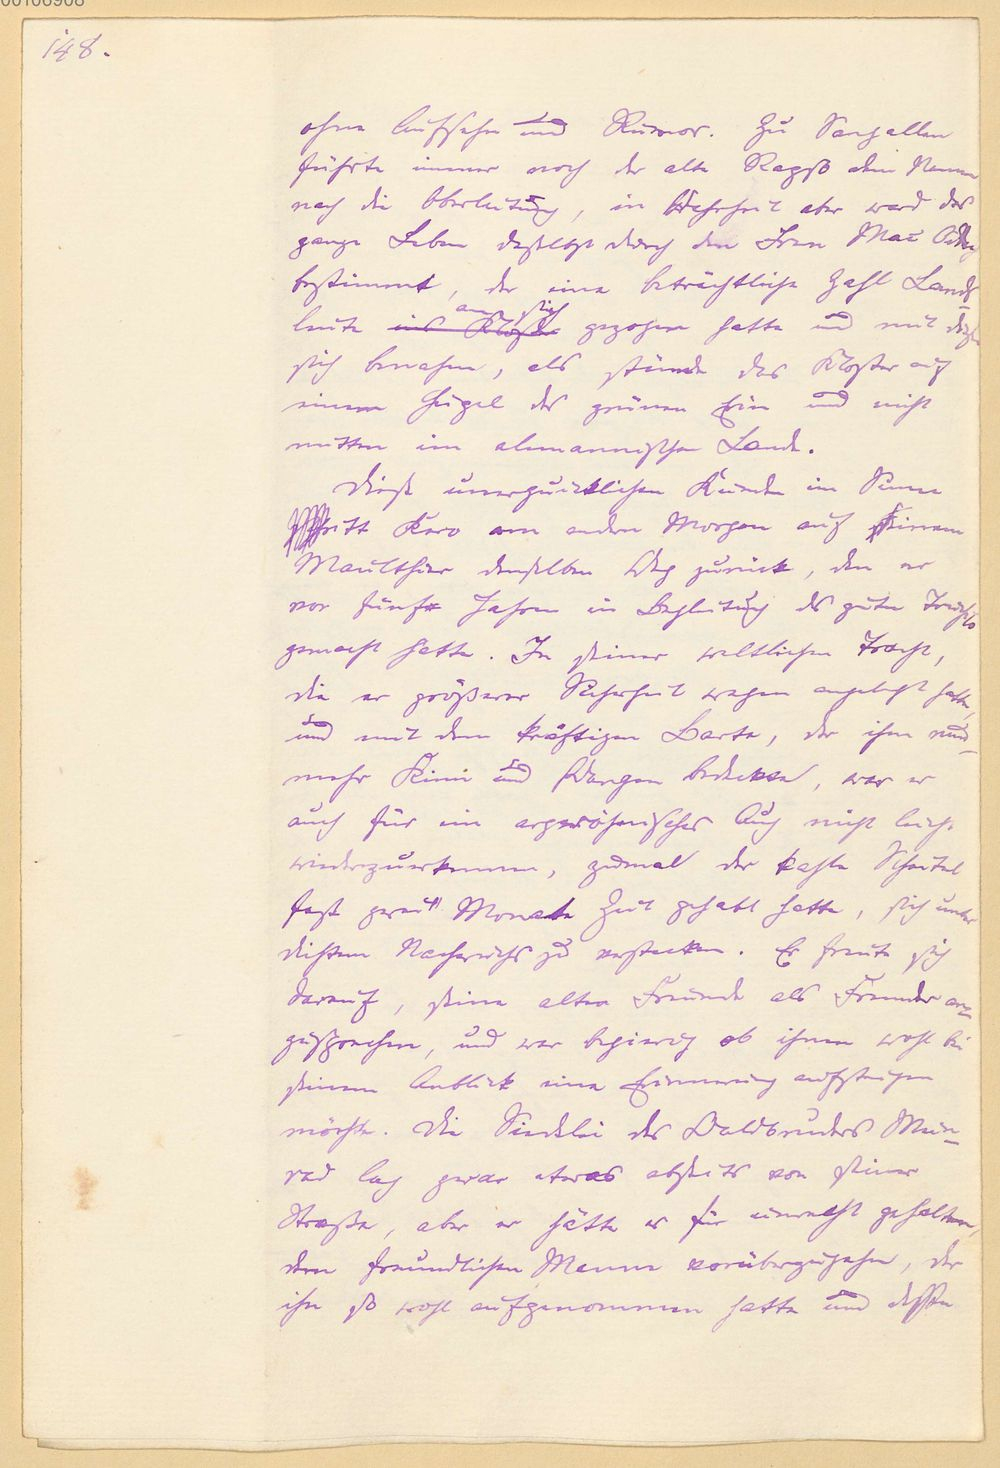 00106908
148.
ohne Aufsehn und Rumor. Zu Sangallen
führte immer noch der alte Ragyß dem Namen
nach die Oberleitung, in Wahrheit aber ward das
ganze Leben daselbst durch den Iren Mac
bestimmt, der eine beträchtliche Zahl Lands-
leute ins Kloster an sich gezogen hatte und mit
sich benahm, als stünde das Kloster auf
einem Hügel des grünen Erin und nicht
mitten im alemannischen Lande.
Diese unerquicklichen Kunden im Sinne
ritt Karo am andern Morgen auf seinem
Maulthier denselben Weg zurück, den er
vor fünf Jahren in Begleitung des guten
gemacht hatte. In seiner weltlichen Tracht,
die er größerer Sicherheit wegen angelegt hatte,
und mit dem kräftigen Barte, der ihm nun-
mehr Kinn und Wangen bedeckte, war er
auch für ein argwöhnisches Aug nicht leicht
wiederzuerkennen, zumal der kahle Scheitel
fast zwei Monate Zeit gehabt hatte, sich unter
dichtem Nachwuchs zu verstecken. Er freute sich
darauf, seine alten Freunde als Fremder an-
zusprechen, und war begierig ob ihnen wohl bei
seinem Anblick eine Erinnerung aufsteigen
möchte. Die Siedelei des Waldbruders Mein-
rad lag zwar etwas abseits von seiner
Straße, aber er hätte es für unrecht gehalten,
dem freundlichen Manne vorüberzugehn, der
ihn so wohl aufgenommen hatte und dessen